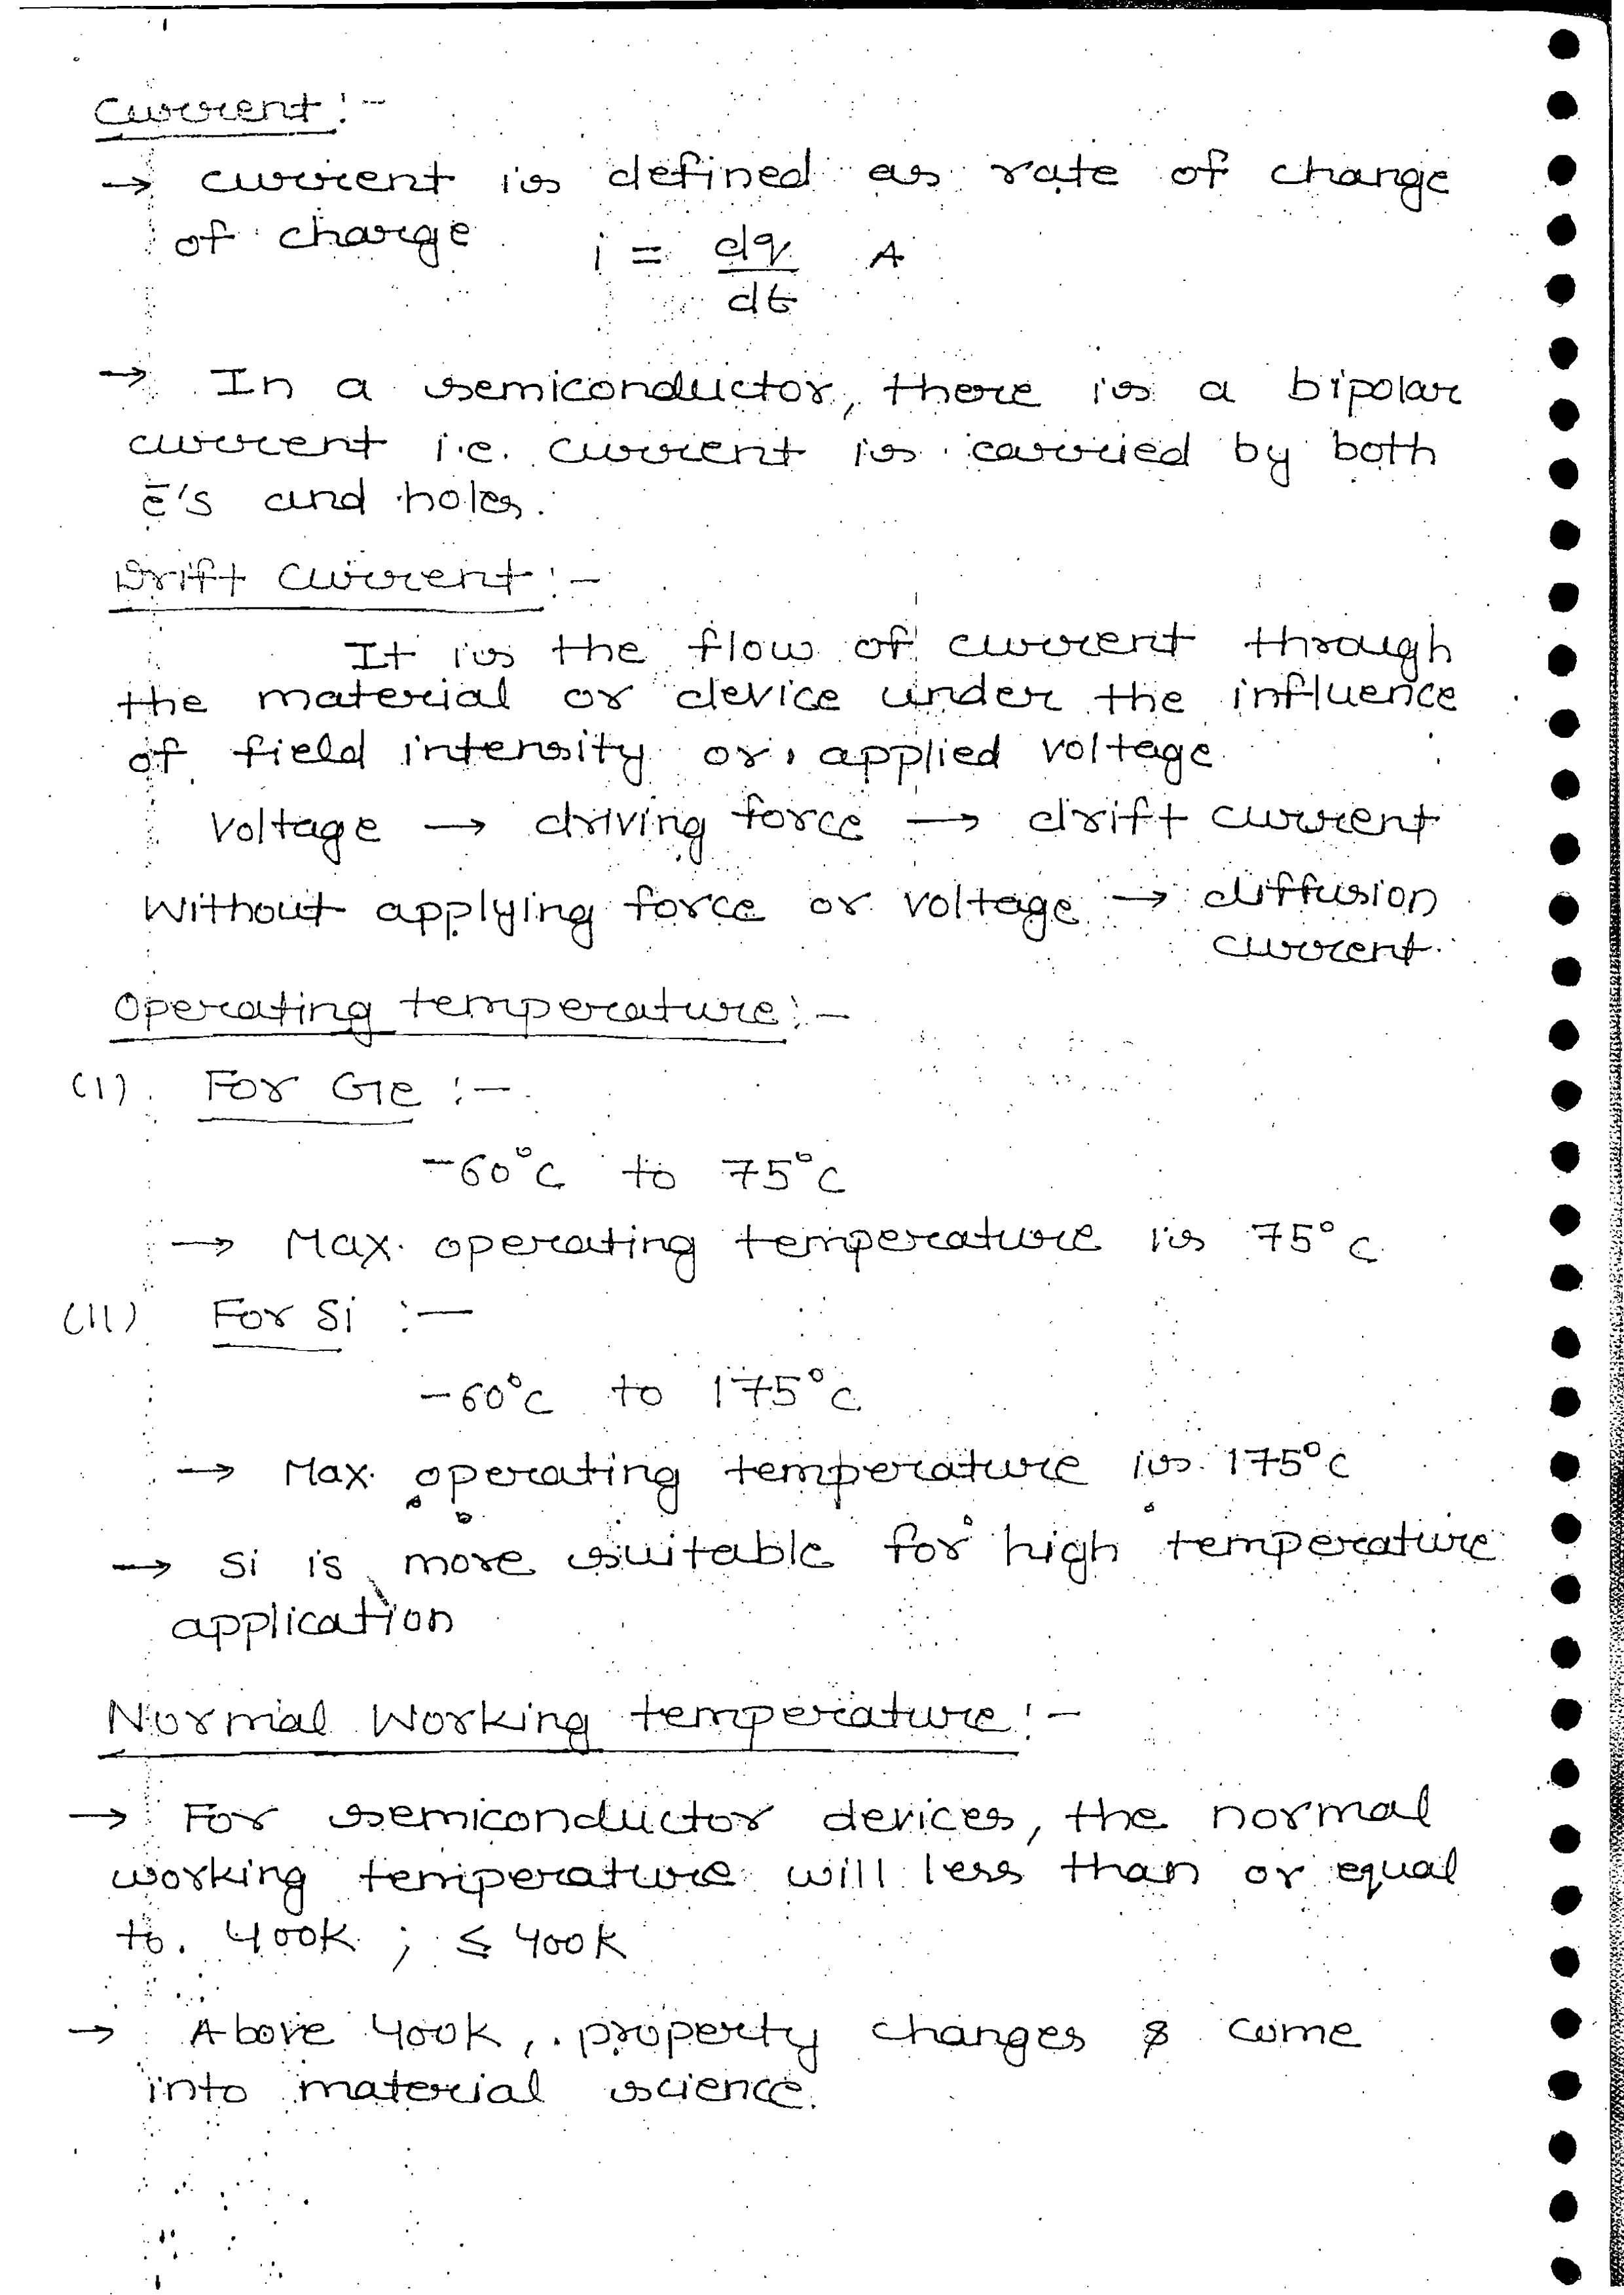 Current :-
→ current is defined as rate of change
of charge
i = dq/dt A
→ In a semiconductor, there is a bipolar
current i.e. current is carried by both
ē's and holes.
Drift current :-
It is the flow of current through
the material or device under the influence
of field intensity or, applied voltage
Voltage → driving force → drift current
Without applying force or voltage → diffusion
current.
Operating temperature :-
(I) For Ge :-
-60°C to 75°C
→ Max. operating temperature is 75°C
(II) For Si :-
-60°C to 175°C
→ Max. operating temperature is 175°C
→ Si is more suitable for high temperature
application
Normal Working temperature :-
→ For semiconductor devices, the normal
working temperature will less than or equal
to 400K ; ≤ 400K
→ Above 400K, property changes & come
into material science.